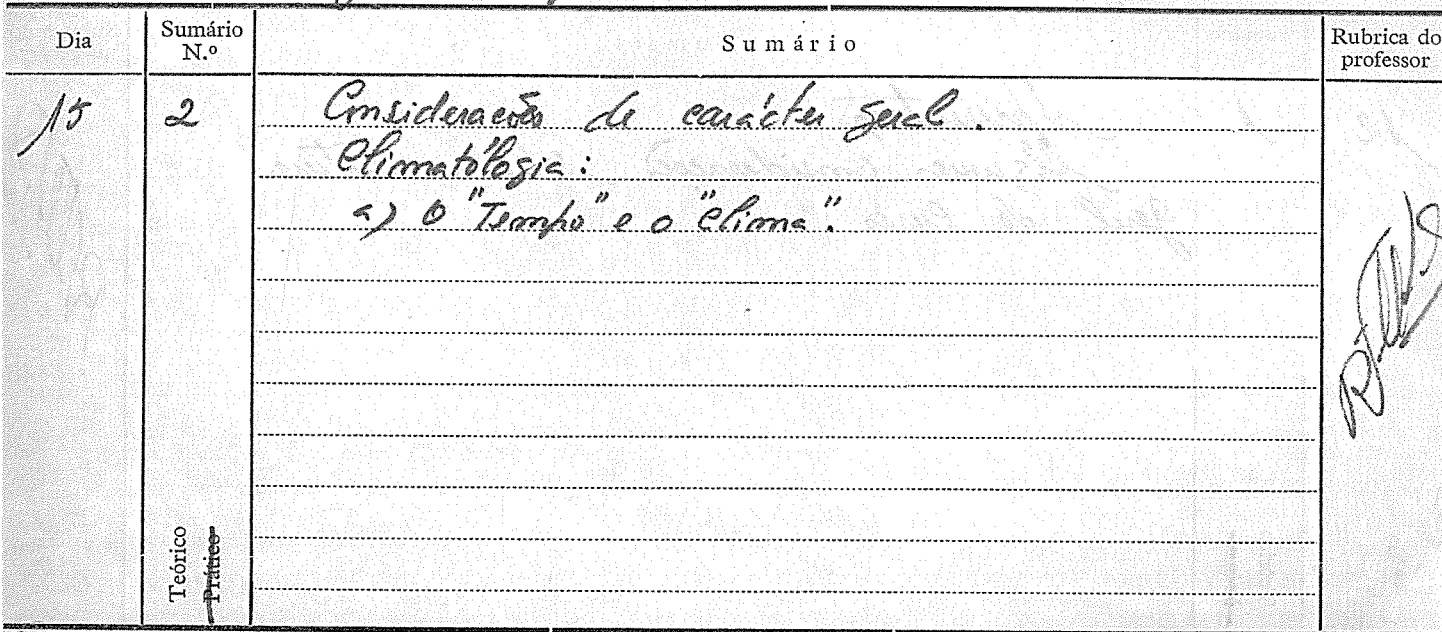 Dia
Sumário N.º
Sumário
Rubrica do professor
15
2
Considerações de carácter geral.
Climatologia:
a) O "Tempo" e o "Clima".
Teórico
Prático